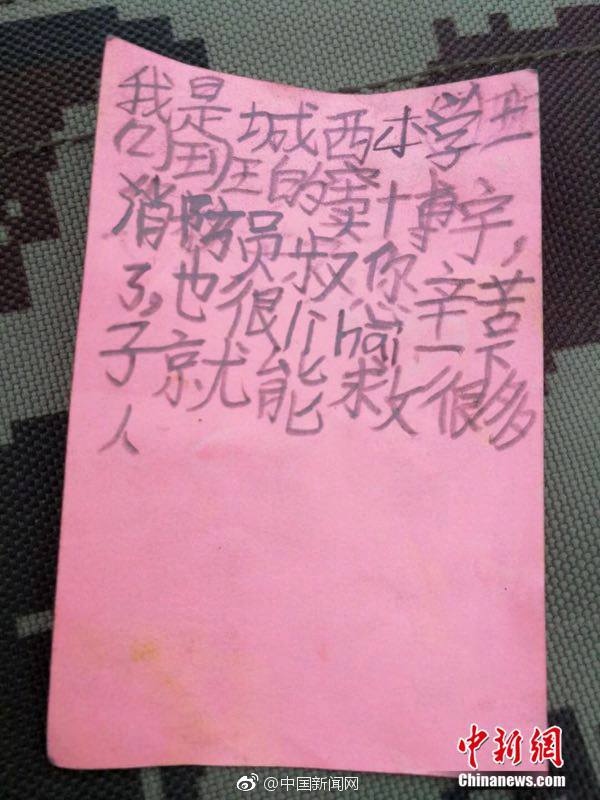 我是城西小学二
班的窦博宇,
消防员叔您辛苦
了,也很hai一下
子就能救很多
人
@中国新闻网
中新网
Chinanews.com